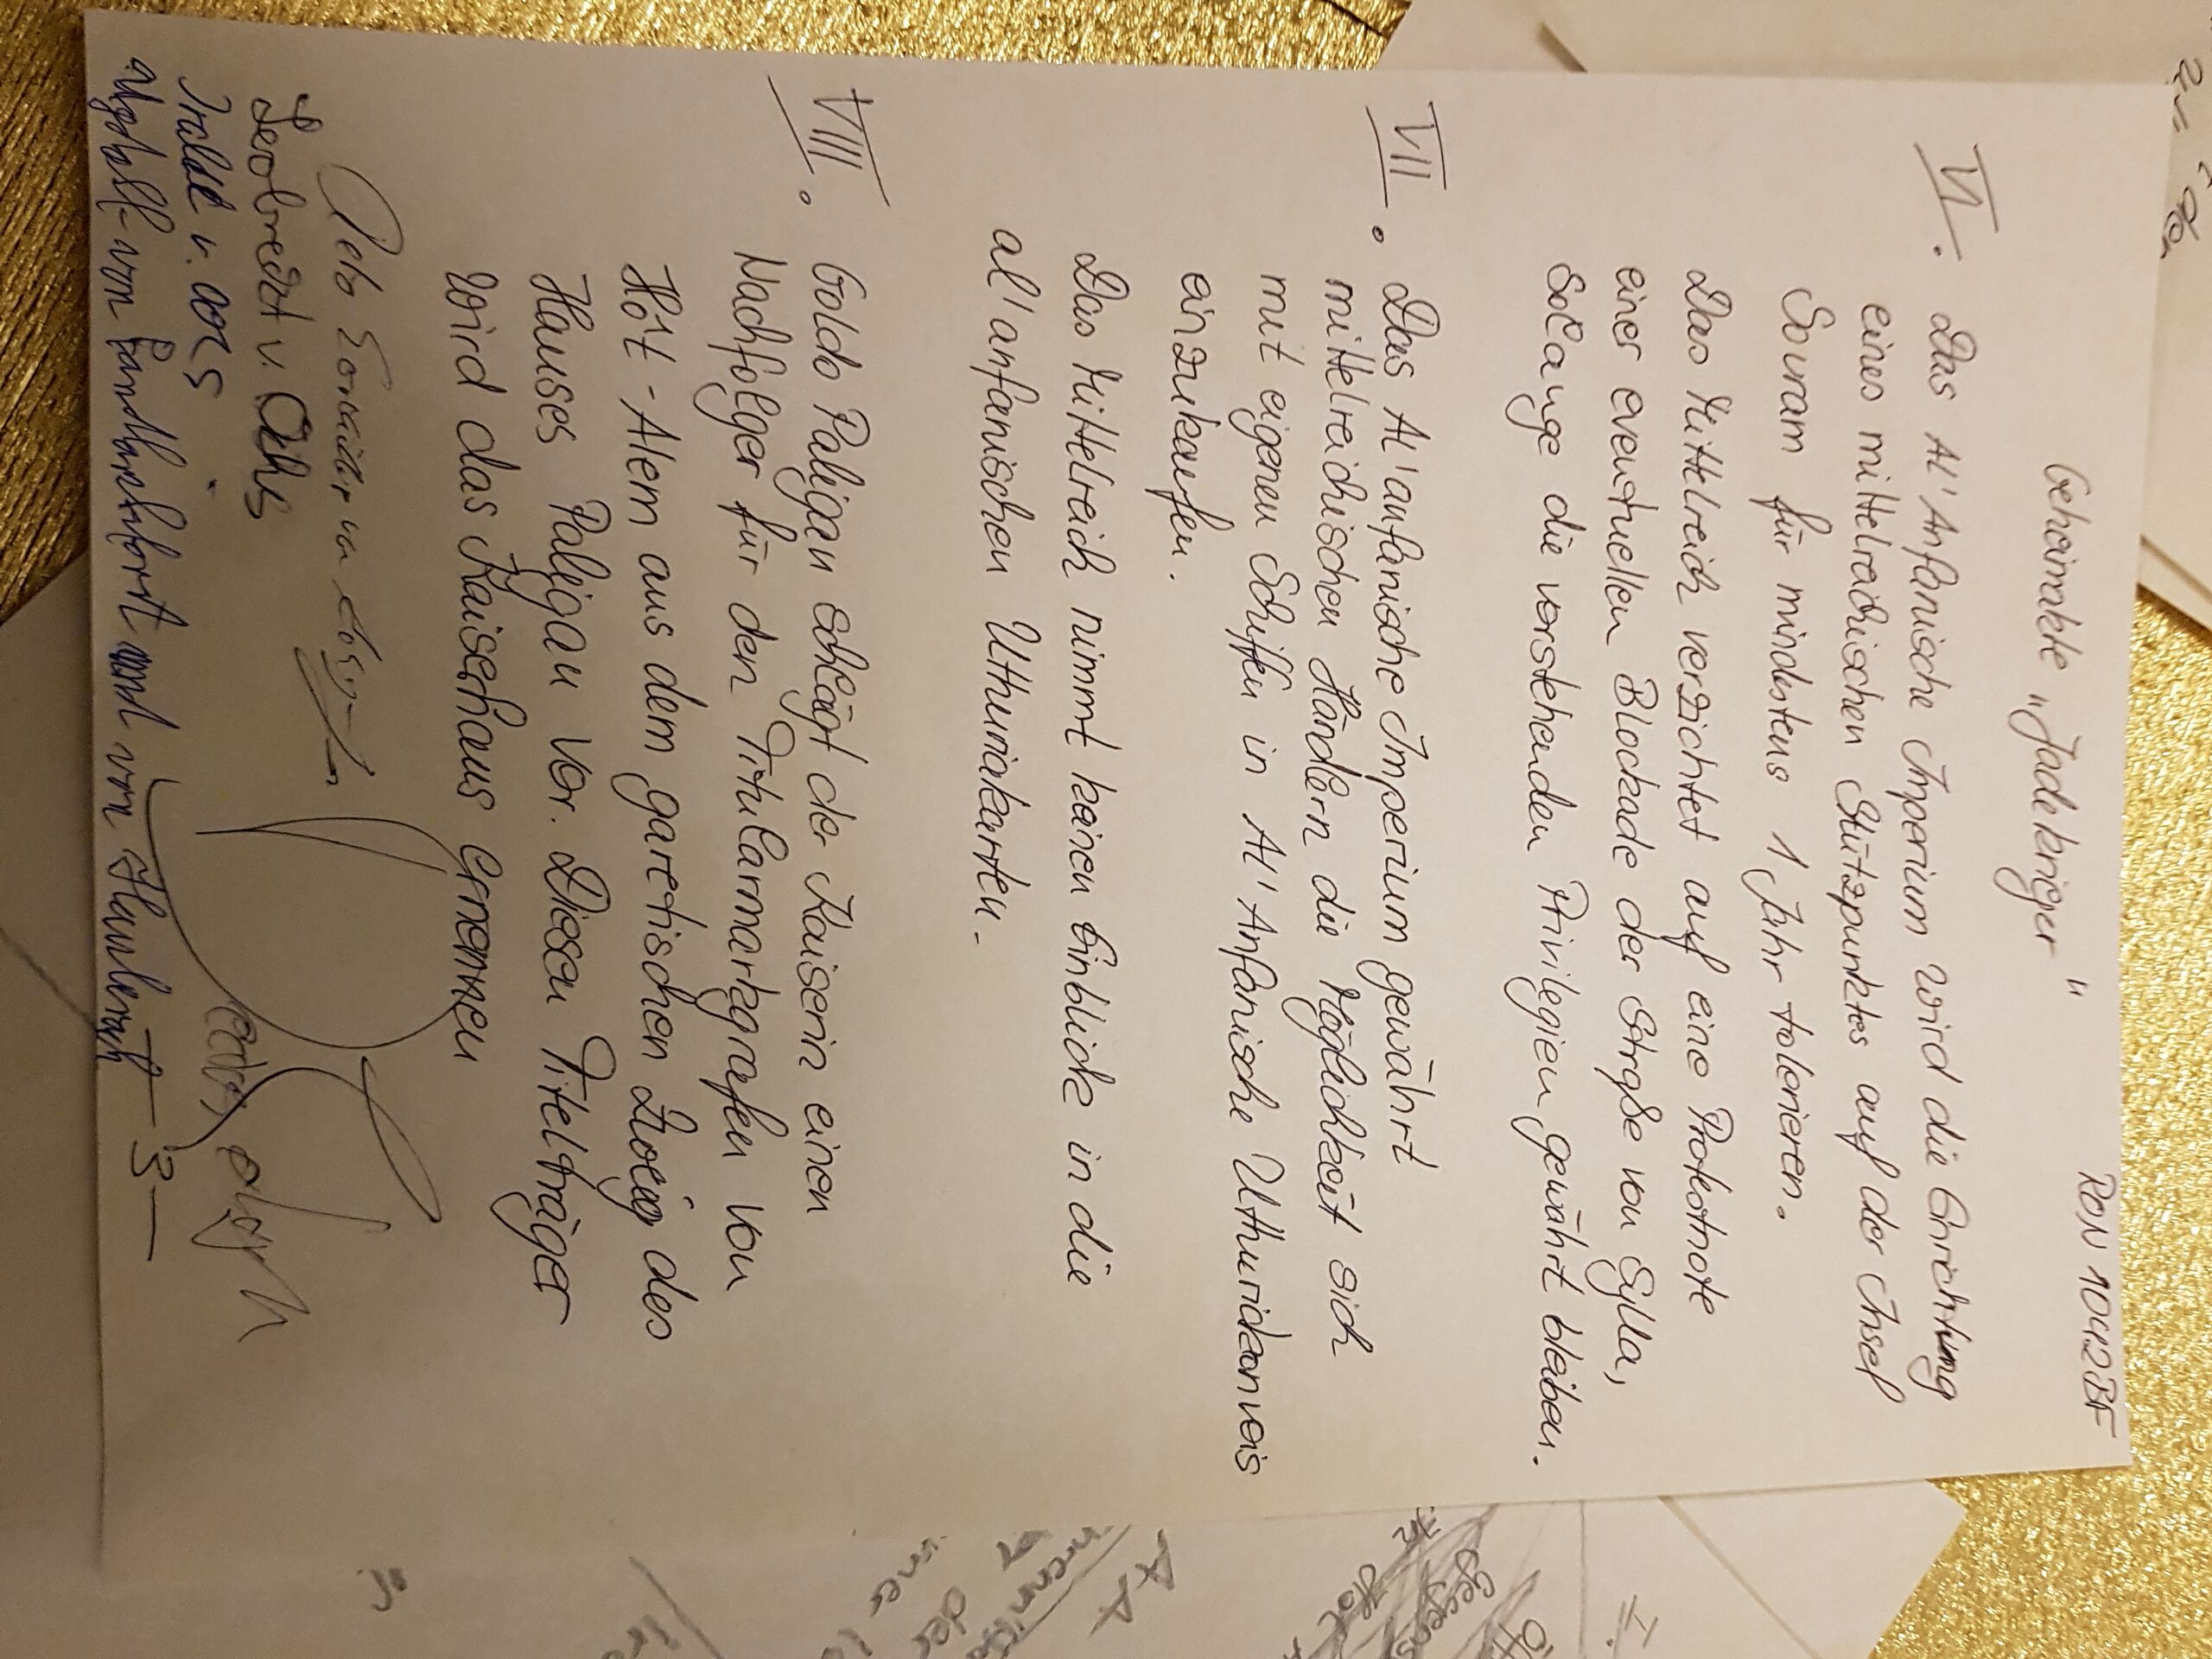 RON 1042BF
Geheimakte "Jadekrieger"
VI. Das Al'Anfanische Imperium wird die Errichtung
eines mittelreichischen Stützpunktes auf der Insel
Souram für mindestens 1 Jahr tolerieren.
Das Mittelreich verzichtet auf eine Protestnote
einer eventuellen Blockade der Straße von Sylla,
solange die vorstehenden Privilegien gewährt bleiben.
VII. Das Al'anfanische Imperium gewährt
mittelreichischen Händlern die Möglichkeit sich
mit eigenen Schiffen in Al'Anfanische Uthuria
einzukaufen.
Das Mittelreich nimmt keinen Einblick in die
al'anfanischen Uthuriakarten.
VIII. Goldo Paligan schlägt der Kaiserin einen
Nachfolger für den Titularmarkgrafen von
Hôt-Alem aus dem garetischen Zweig des
Hauses Paligan vor. Diesen Titelträger
wird das Kaiserhaus ernennen
Leobrecht v. Ochs
v.
von und von
-3-